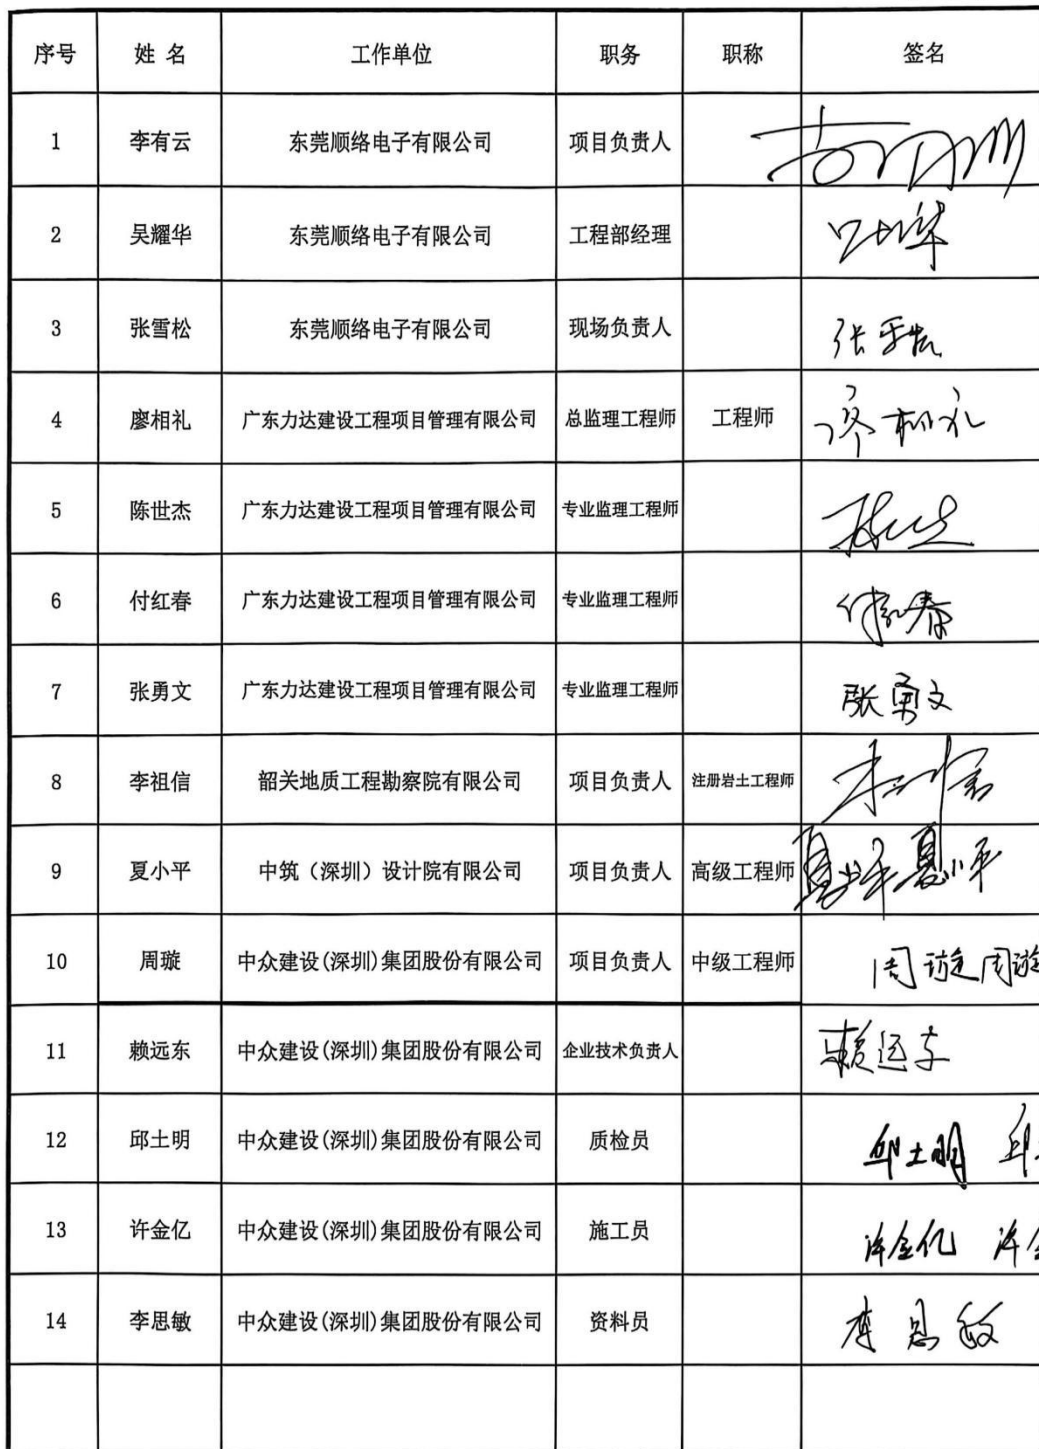 序号 姓 名 工作单位 职务 职称 签名
1 李有云 东莞顺络电子有限公司 项目负责人
2 吴耀华 东莞顺络电子有限公司 工程部经理
3 张雪松 东莞顺络电子有限公司 现场负责人
4 廖相礼 广东力达建设工程项目管理有限公司 总监理工程师 工程师 廖相礼
5 陈世杰 广东力达建设工程项目管理有限公司 专业监理工程师
6 付红春 广东力达建设工程项目管理有限公司 专业监理工程师 付红春
7 张勇文 广东力达建设工程项目管理有限公司 专业监理工程师 张勇文
8 李祖信 韶关地质工程勘察院有限公司 项目负责人 注册岩土工程师
9 夏小平 中筑（深圳）设计院有限公司 项目负责人 高级工程师 夏小平 夏小平
10 周璇 中众建设(深圳)集团股份有限公司 项目负责人 中级工程师 周璇 周璇
11 赖远东 中众建设(深圳)集团股份有限公司 企业技术负责人 赖远东
12 邱土明 中众建设(深圳)集团股份有限公司 质检员 邱土明 邱
13 许金亿 中众建设(深圳)集团股份有限公司 施工员 许金亿 许金
14 李思敏 中众建设(深圳)集团股份有限公司 资料员 李思敏